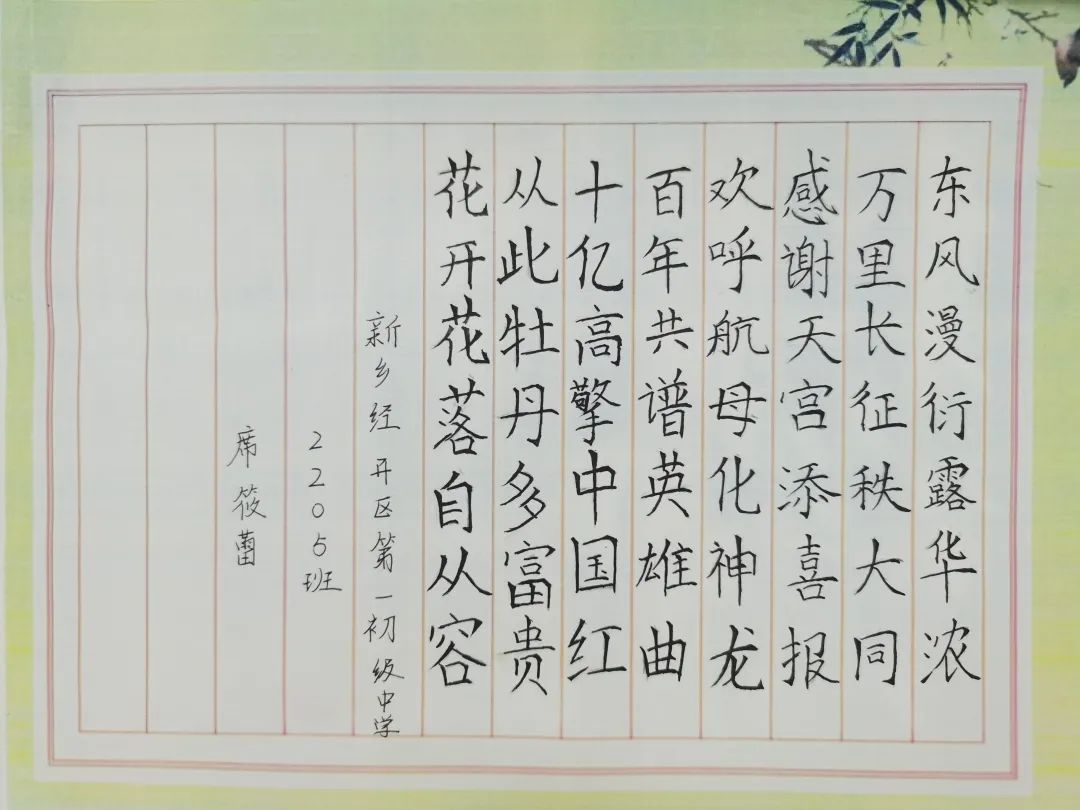 东风漫衍露华浓
万里长征秩大同
感谢天宫添喜报
欢呼航母化神龙
百年共谱英雄曲
十亿高擎中国红
从此牡丹多富贵
花开花落自从容
新乡经开区第一初级中学
2205班
席筱蕾